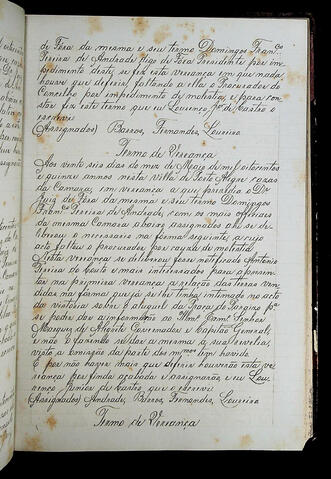 de Fora da mesma e seu termo Domingos Fran.co
Pereira de Andrade digo de Fora Presidente por im-
pedimento deste, se fez esta vereança em que nada
houve que deferir, faltando a ella o Procurador do
Concelho por impedimento de molestia, e para con-
star fiz este termo que eu Lourenço J.or de Castro o
escrevi
(Assignados) Barros, Fernandes, Loureiro
Termo de Vereança
Aos vinte seis dias do mez de Maio de mil oitocentos
e quinze annos nesta Villa de Porto Alegre cazas
da Camara, em vereança a que prezidio o Dr.
Juiz de Fora da mesma e seu termo Domingos
Fran.co Pereira de Andrade, com os mais officiaes
da mesma Camara abaixo assignados ahi se de-
librou o necessario na forma seguinte, a cujo
acto faltou o procurador por cauza de molestia
Nesta vereança se deliberou fosse notificado Antonio
Pereira do Couto e mais interessados para aprezen-
tar na primeira vereança a relação das terras ven-
didas na forma que já se lhe tinha intimado no acto
da vistoria sobre o aluguel da Praça do Paraizo p.a
se poder dar a informação ao Illmo. Exmo. Senhor
Marquez de Alegrete Governador e Capitão General,
e não o fazendo se dar a mesma á sua revelia,
visto a omissão da parte dos mesmos tem havido.
E por não haver mais que deferir houverão esta ve-
reança por finda acabada e assignarão, eu Lou-
renço Junior de Castro que o escrevi
(Assignados) Andrade, Barros, Fernandes, Loureiro
Termo de Vereança